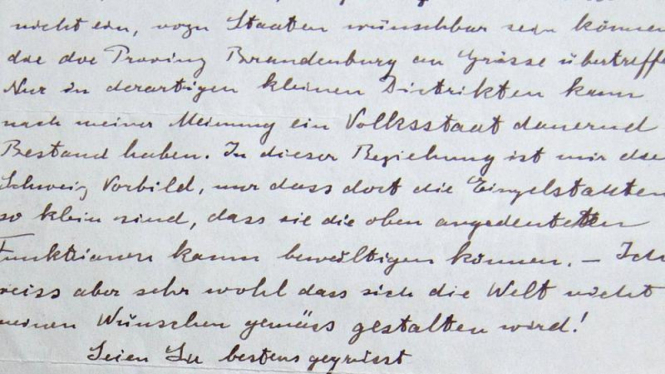 nicht ein, wozu Staaten wünschbar sein können
die die Provinz Brandenburg an Grösse übertreffe
Nur in derartigen kleinen Distrikten kann
nach meiner Meinung ein Volksstaat dauernd
Bestand haben. In dieser Beziehung ist mir die
Schweiz Vorbild, nur dass dort die Einzelstaaten
so klein sind, dass sie die oben angedeuteten
Funktionen kaum bewältigen können. – Ich
weiss aber sehr wohl dass sich die Welt nicht
meinen Wünschen gemäss gestalten wird!
Seien Sie bestens gegrüsst